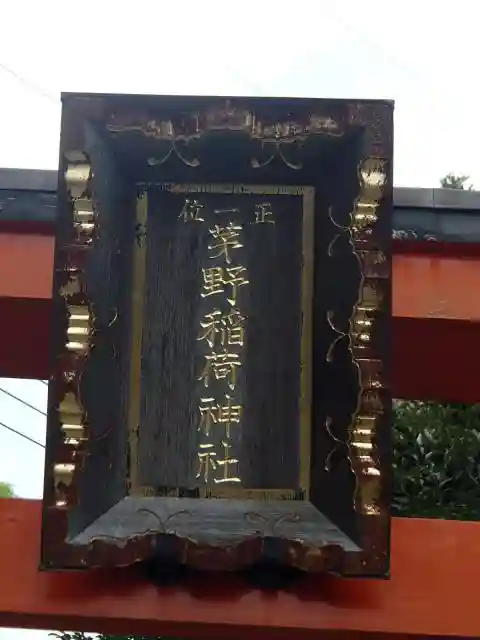 正一位
茅野稲荷神社